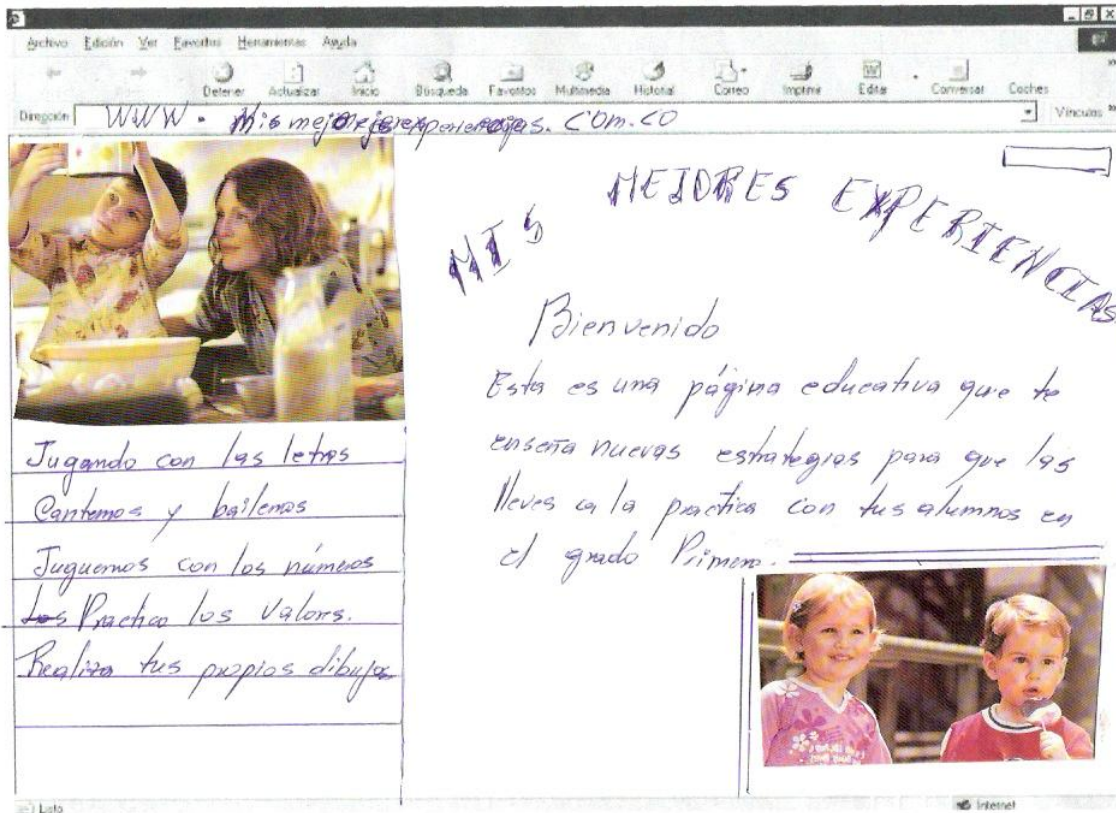 Archivo Edición Ver Favoritos Herramientas Ayuda
Detener Actualizar Inicio Búsqueda Favoritos Multimedia Historial Correo Imprimir Editar Conversar Coches
Dirección WWW. .com.co Vínculos
MIS MEJORES EXPERIENCIAS
Bienvenido
Esta es una página educativa que te
enseña nuevas estrategias para que las
lleves a la practica con tus alumnos en
el grado Primero.
Jugando con las letras
Cantemos y bailemos
Juguemos con los números
Los Practico los Valores.
Realiza tus propios dibujos
Listo
Internet